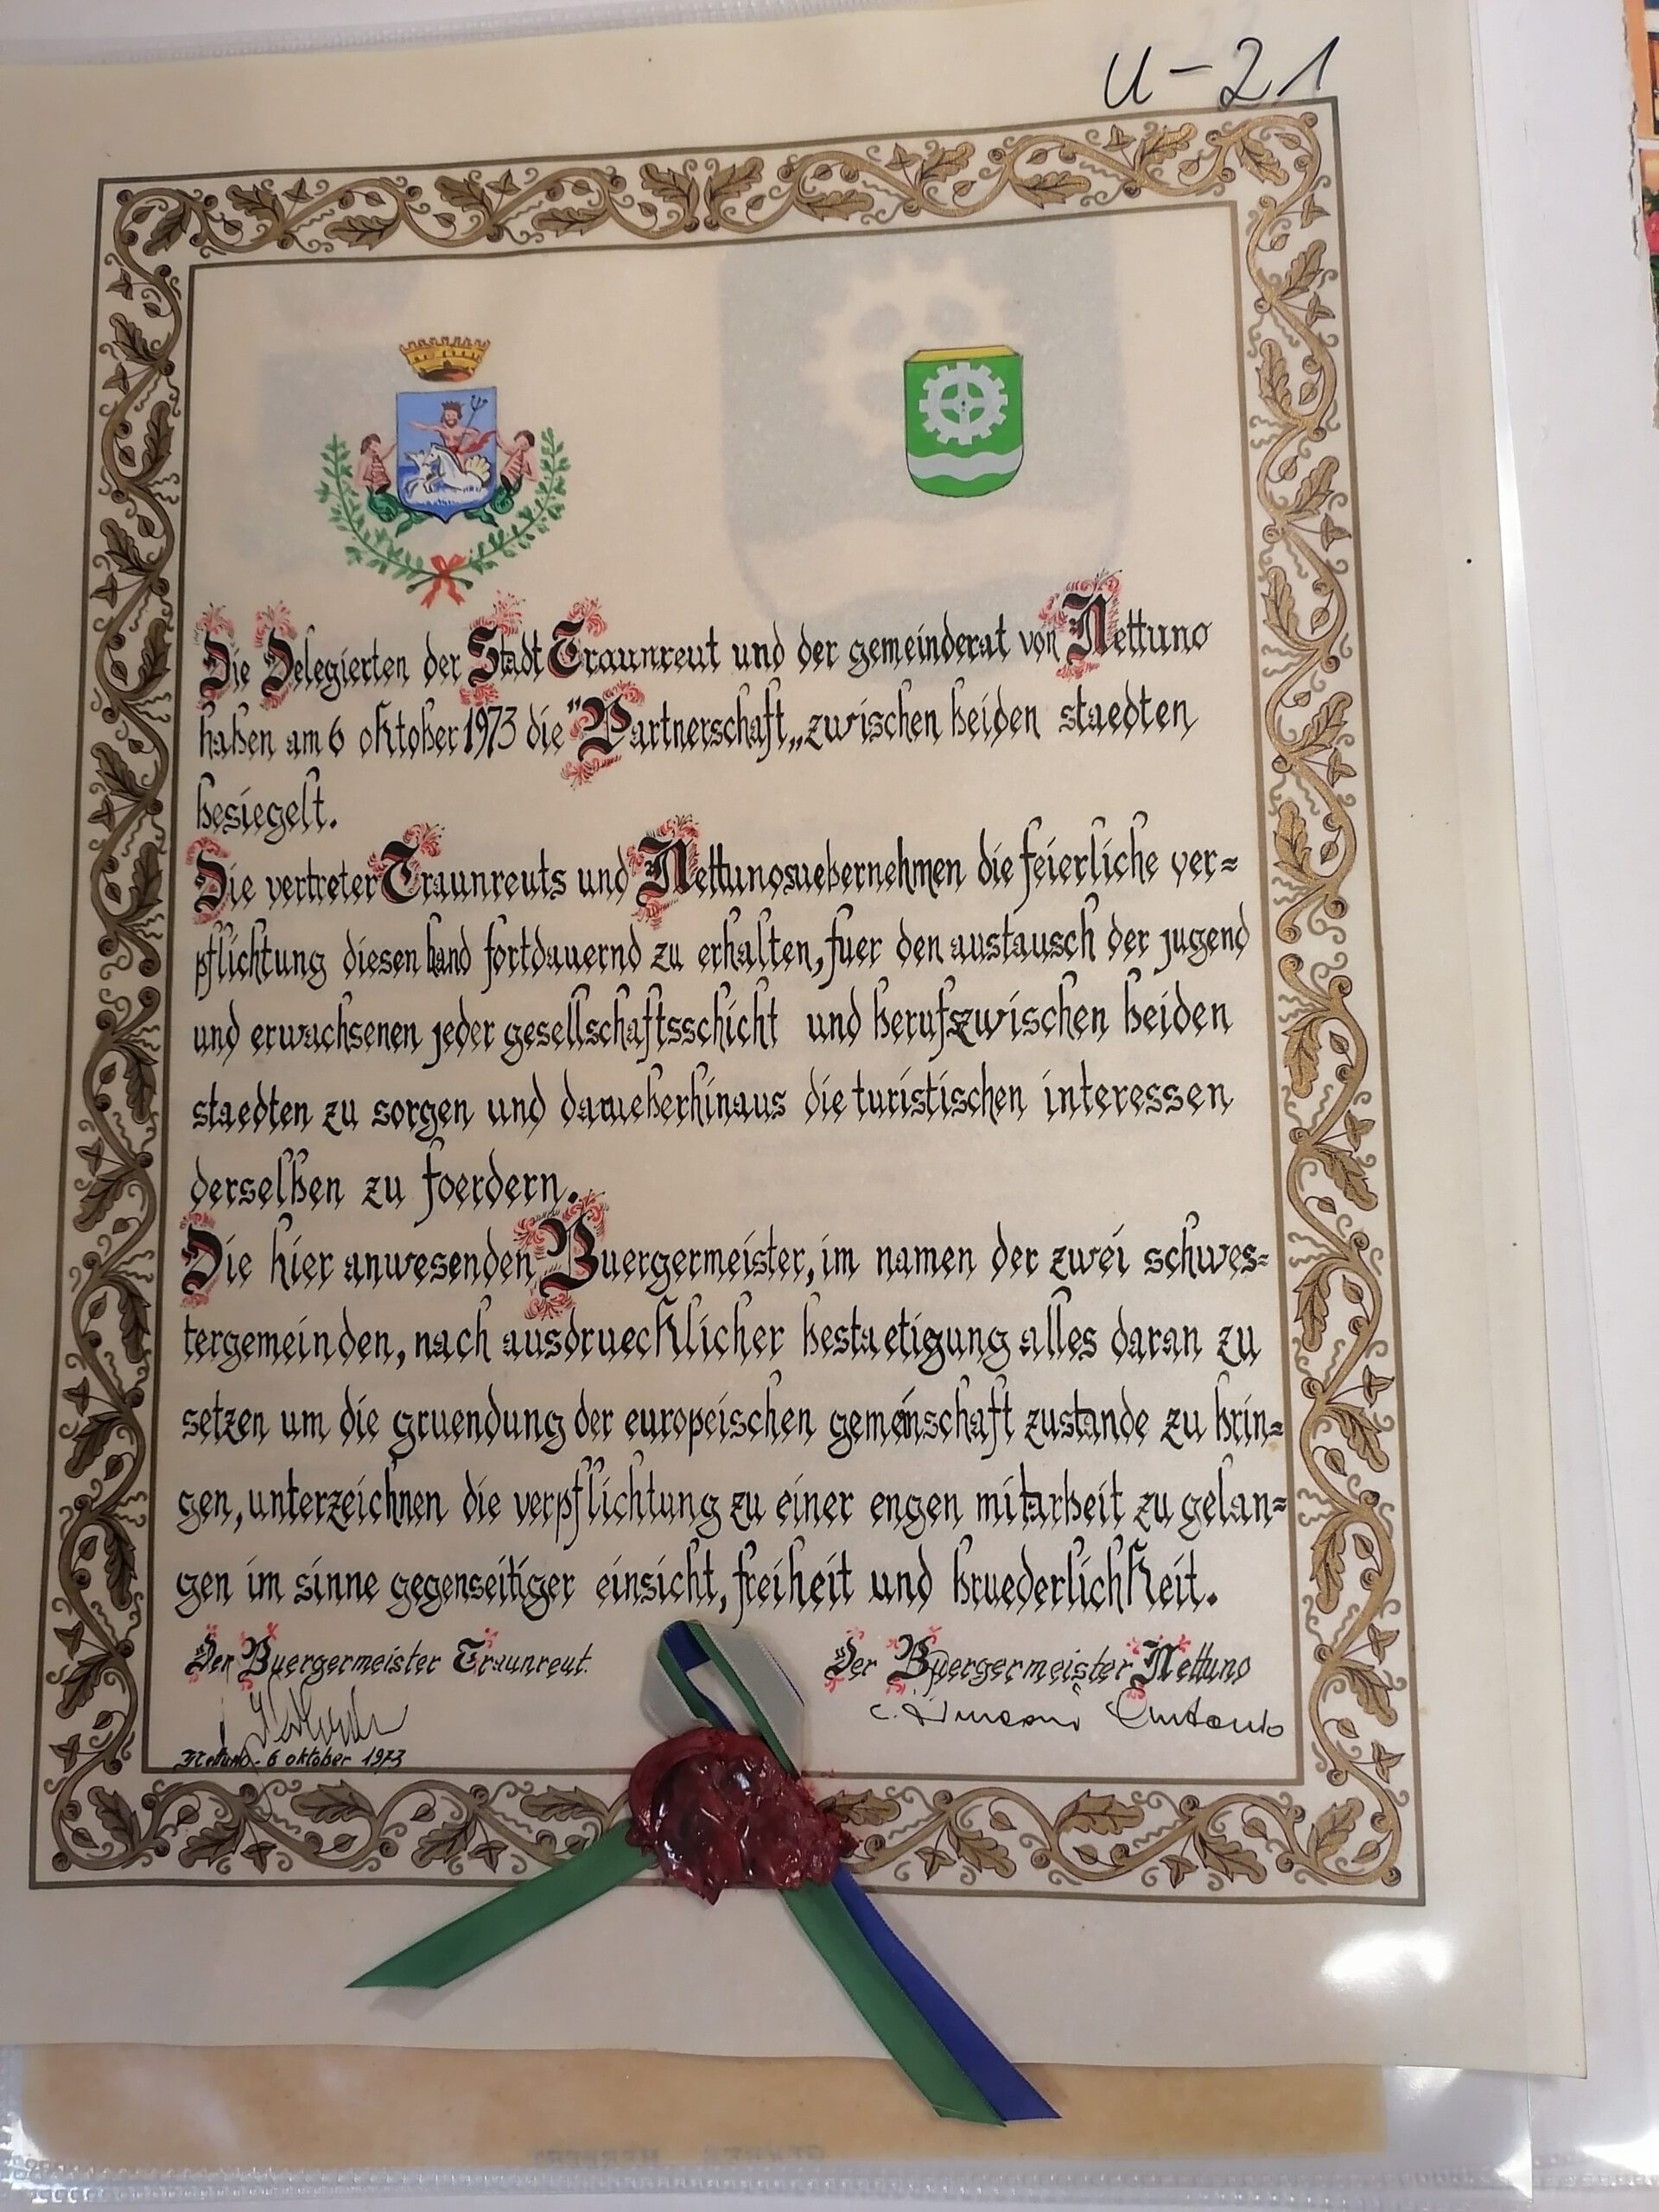 U-21
Die Delegierten der Stadt Traunreut und der gemeinderat von Nettuno
haben am 6 oktober 1973 die "Partnerschaft„ zwischen beiden staedten
besiegelt.
Die vertreter Traunreuts und Nettunos uebernehmen die feierliche ver=
pflichtung diesen band fortdauernd zu erhalten, fuer den austausch der jugend
und erwachsenen jeder gesellschaftsschicht und beruf zwischen beiden
staedten zu sorgen und darueberhinaus die turistischen interessen
derselben zu foerdern.
Die hier anwesenden Buergermeister, im namen der zwei schwes=
tergemeinden, nach ausdruecklicher bestaetigung alles daran zu
setzen um die gruendung der europeischen gemeinschaft zustande zu brin=
gen, unterzeichnen die verpflichtung zu einer engen mitarbeit zu gelan=
gen im sinne gegenseitiger einsicht, freiheit und bruederlichkeit.
Der Buergermeister Traunreut.
Der Buergermeister Nettuno
Nettuno - 6 oktober 1973